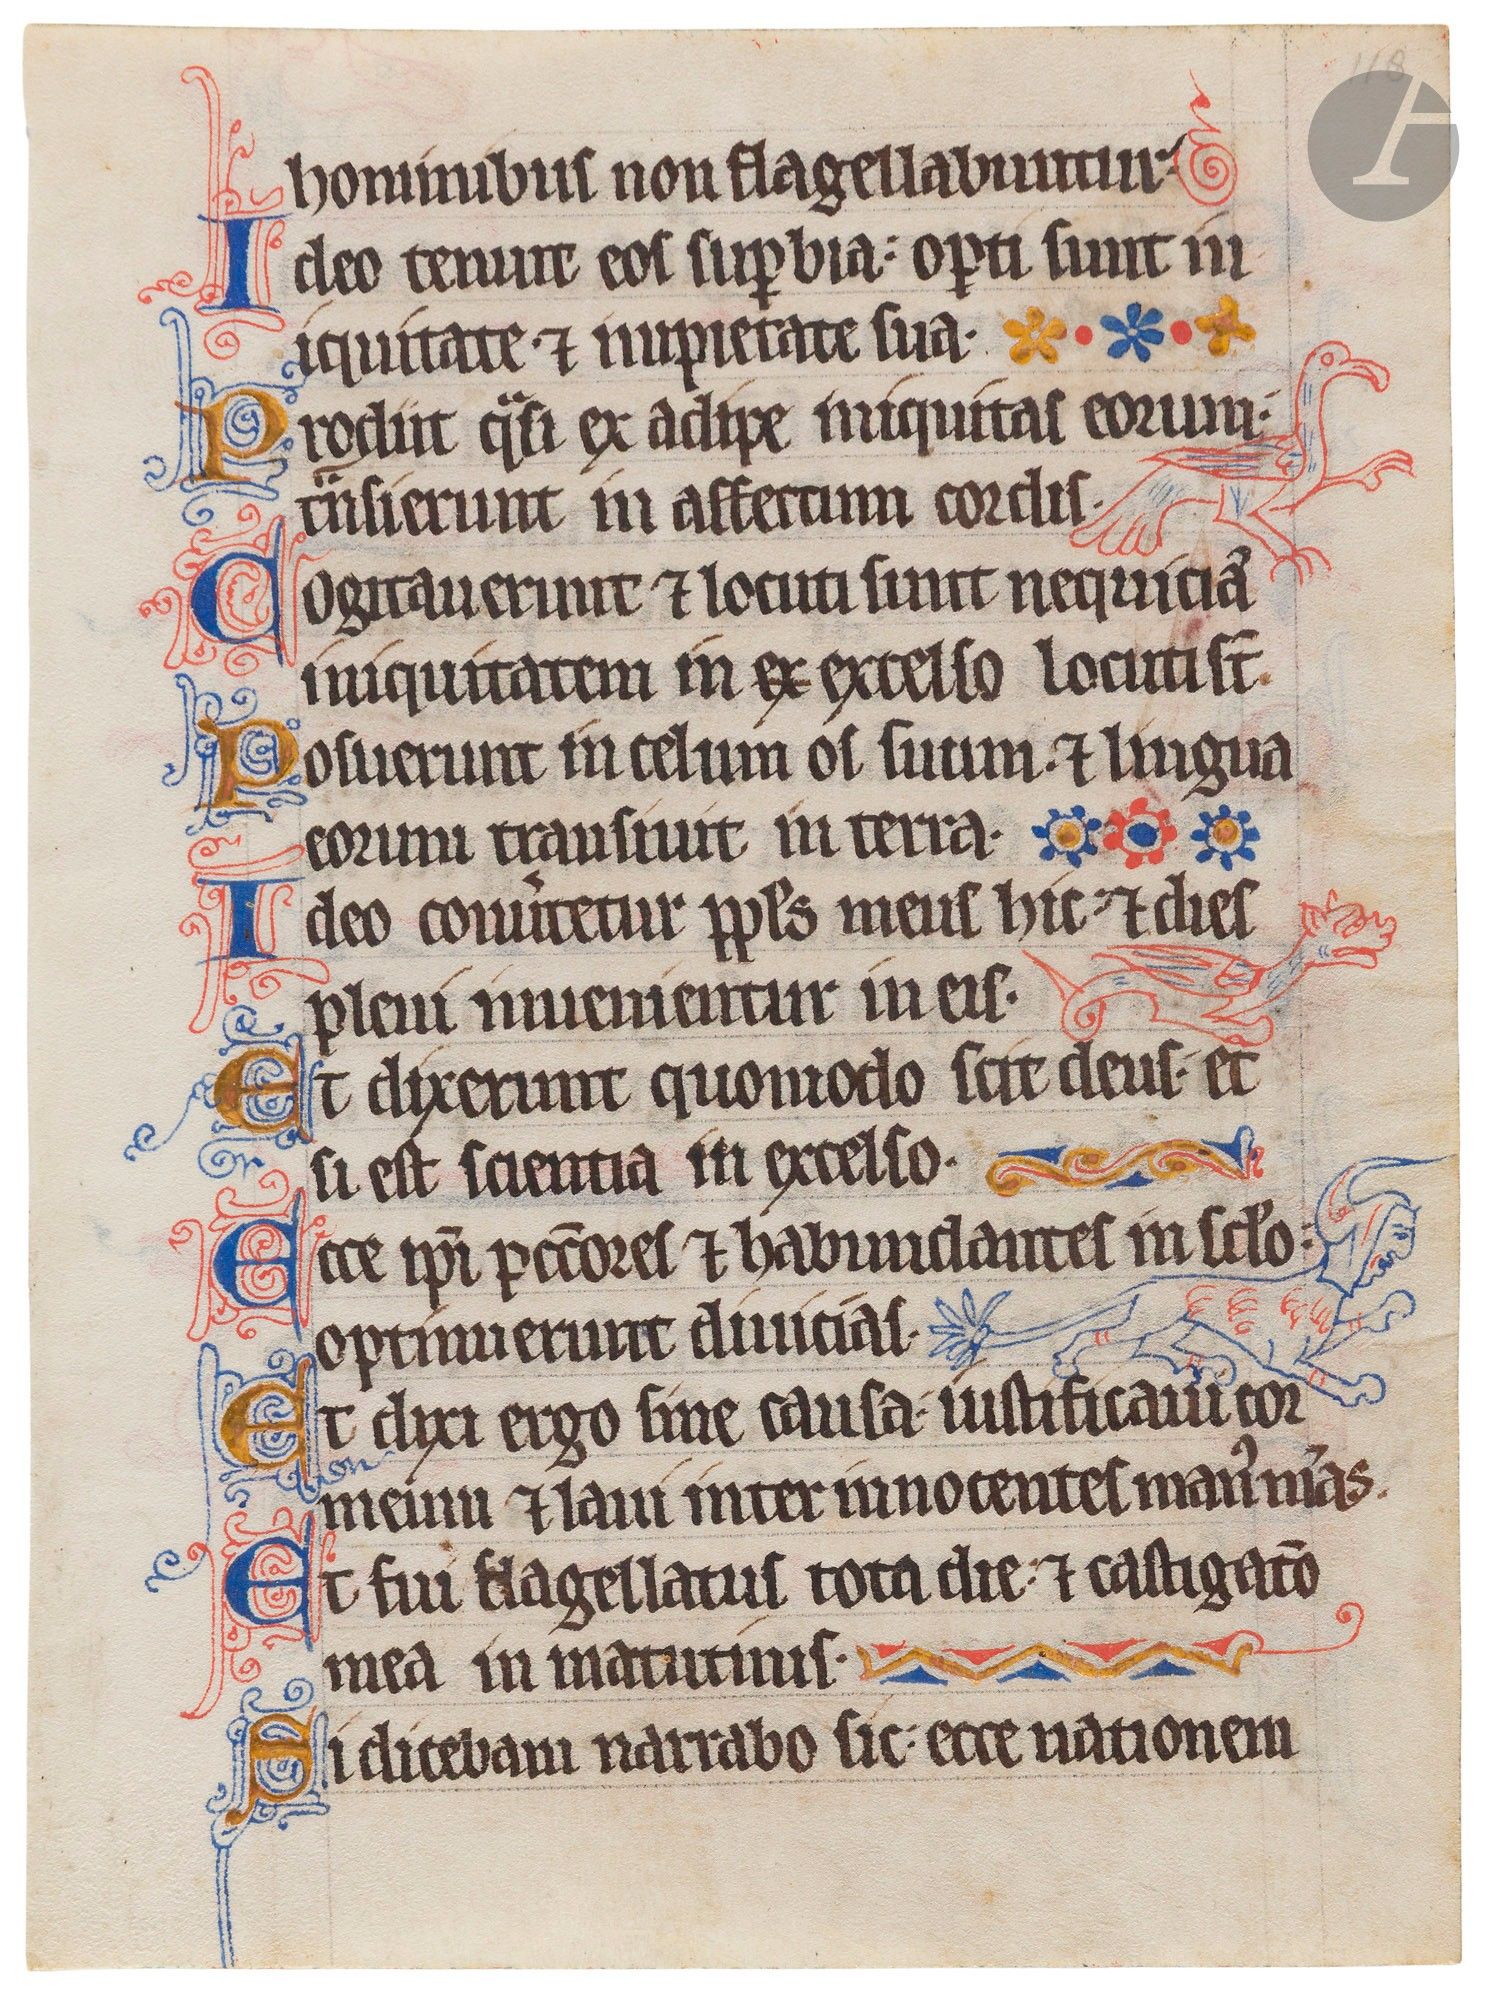 118
hominibus non flagellabuntur·
Ideo tenuit eos suꝑbia: oꝑti sunt in
iquitate· ⁊ impietate sua·
Prodiit qͣsi ex adipe iniquitas eorum:
tͣnsierunt in affectum cordis·
Cogitauerunt ⁊ locuti sunt nequiciā
iniquitatem in ex excelso locuti st̄.
Posuerunt in celum os suum· ⁊ lingua
eorum transiuit in terra·
Ideo conuͥtetur ppl̓s meus hic: ⁊ dies
pleni inuenientur in eis·
Et dixerunt quomodo scit deus· et
si est scientia in excelso·
Ecce ip̄i pcc̄ores ⁊ habundantes in scl̓o:
optinuerunt diuicias·
Et dixi ergo sine causa· iustificaui cor
meum ⁊ laui inter innocentes manꝰ mͤas.
Et fui flagellatus tota die: ⁊ castigatō
mea in matutinis·
Si dicebam narrabo sic· ecce nationem